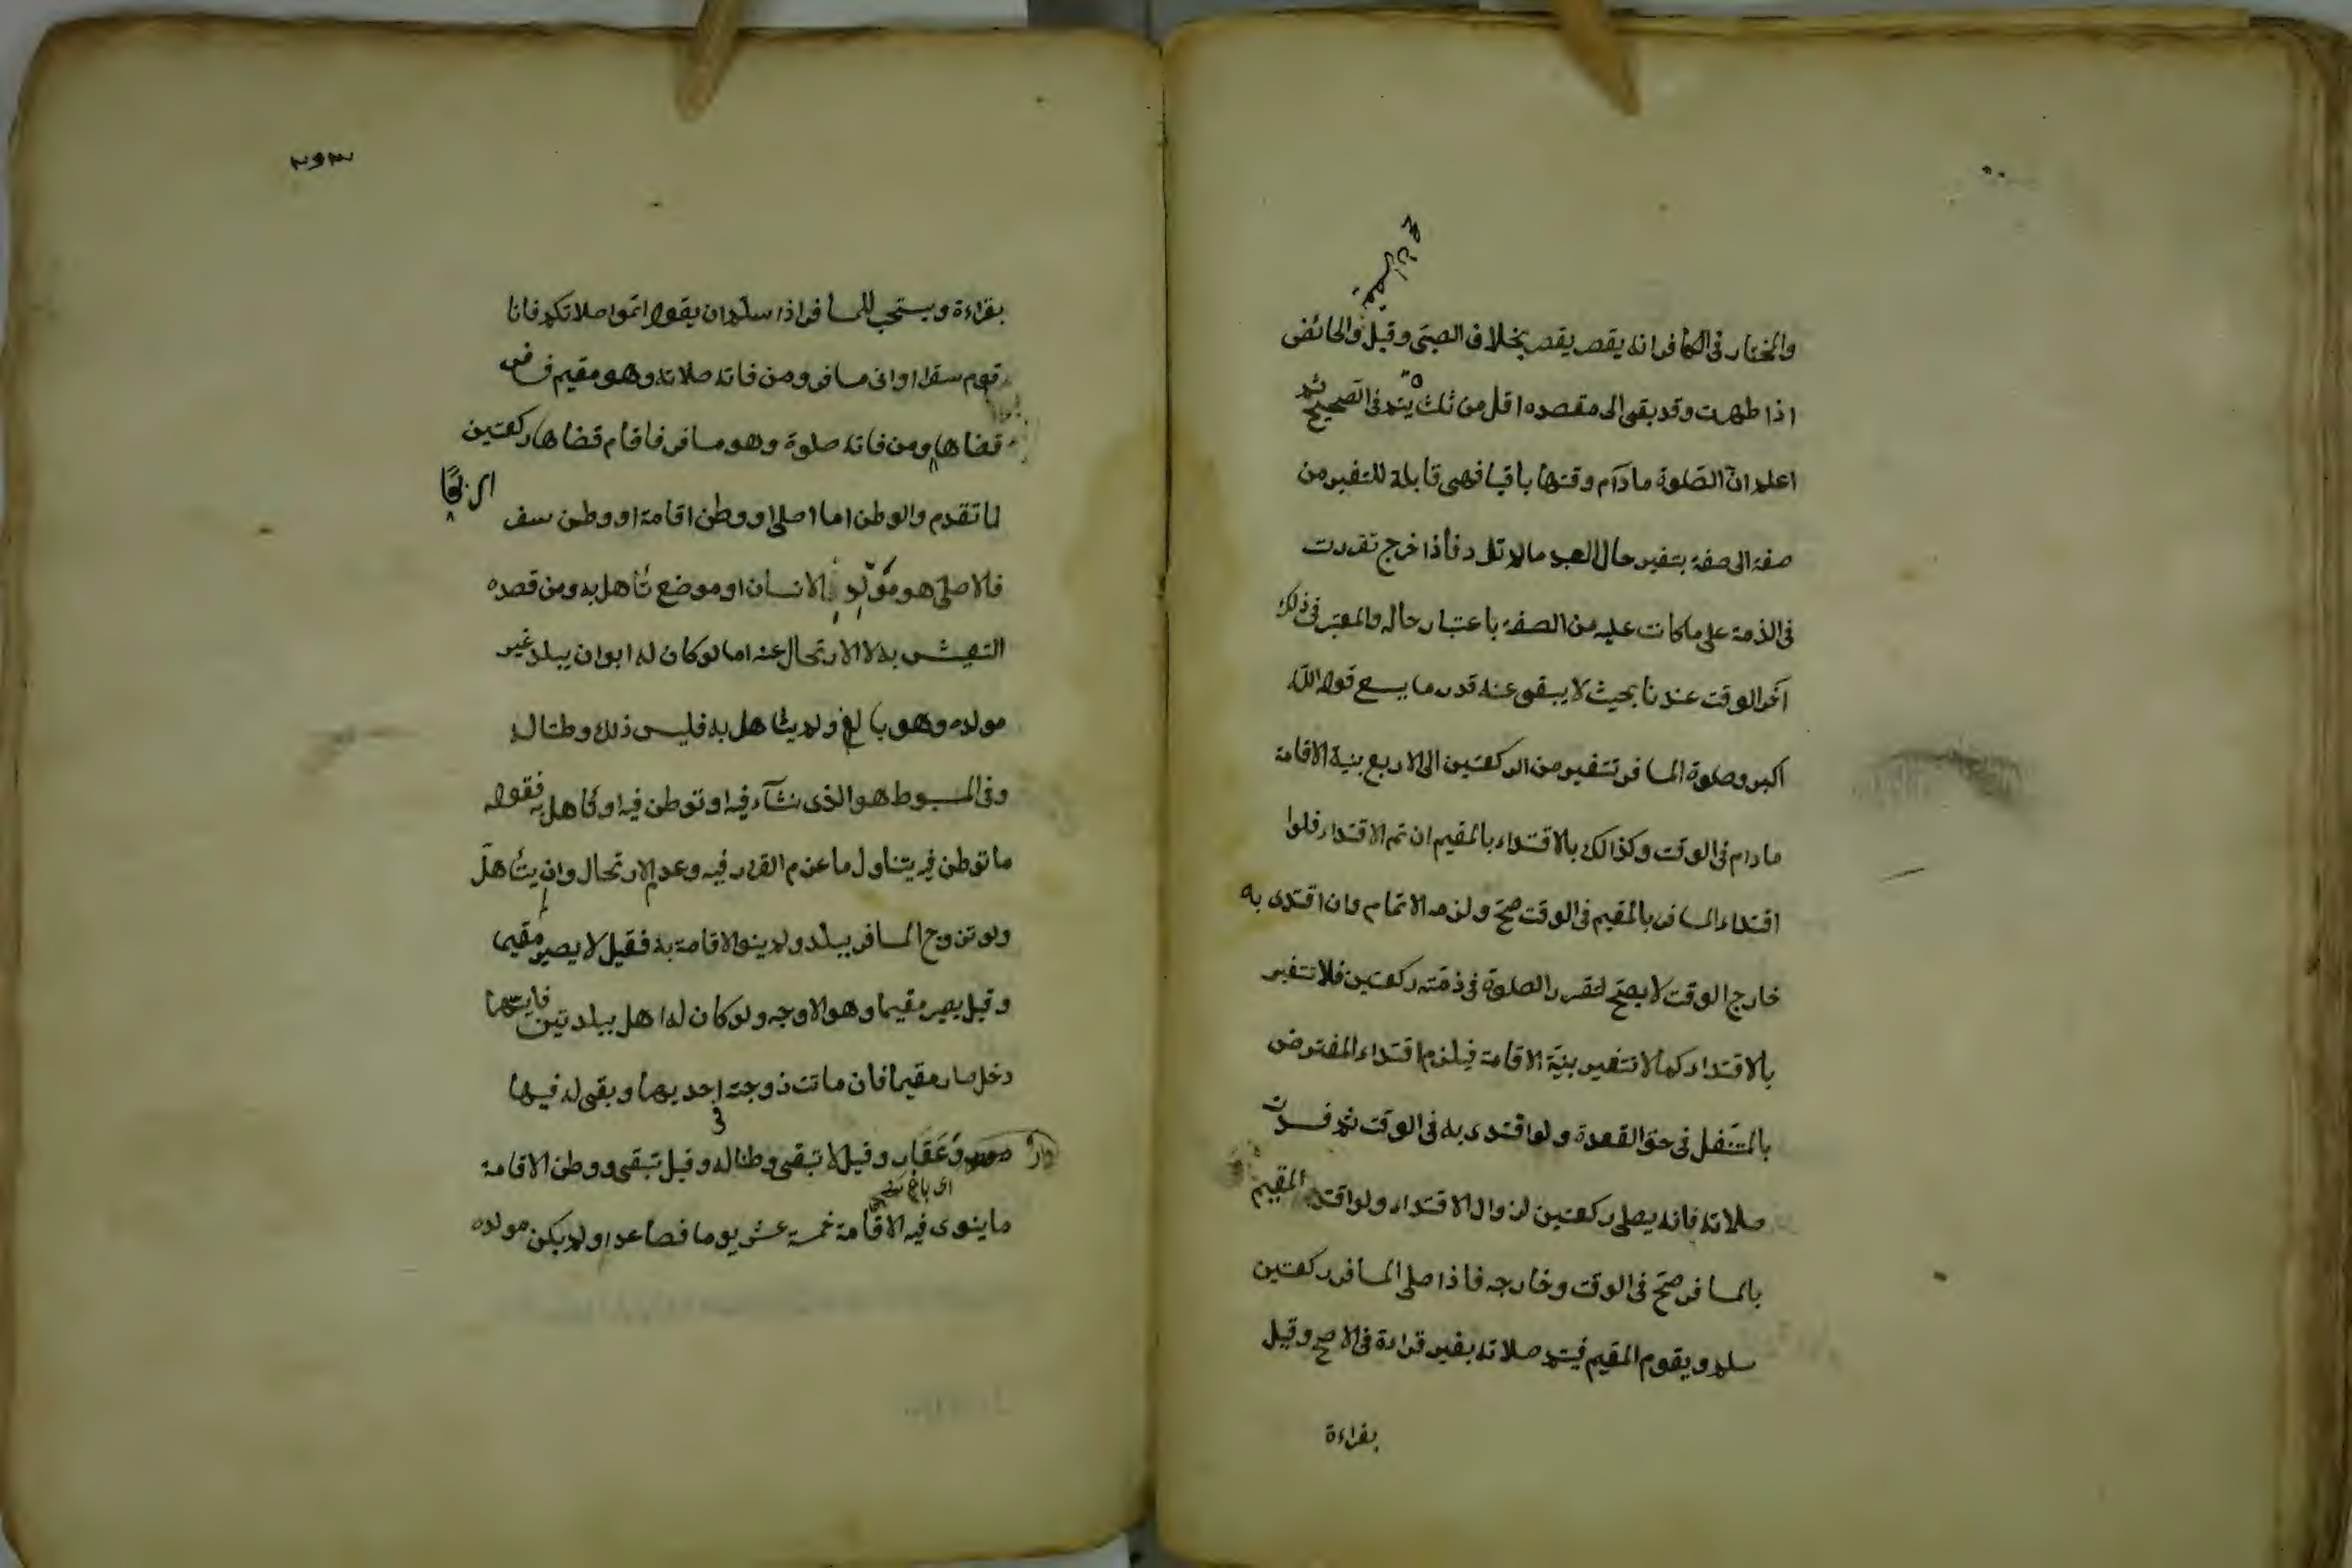 والمختار في الكافر انه يقصر يقصر بخلاف الصبي وقيل والحائض
اذا طهرت وقد بقى الى مقصده اقل من ثلث يتم في الصحيح ثم
اعلم ان الصلوة مادام وقتها باقيا فهى قابلة للتغير من
صفة الى صفة بتغير حال العبد مالم تؤد فاذا خرج تقررت
في الذمة على ماكانت عليه من الصفة باعتبار حاله والمعتبر في ذلك
آخر الوقت عندنا بحيث لا يبقى عنه قدر ما يسع قوله الله
اكبر وصلوة المسافر تتغير من الركعتين الى الاربع بنية الاقامة
مادام في الوقت وكذالك بالاقتداء بالمقيم ان تم الاقتداء فلوا
اقتداء المسافر بالمقيم في الوقت صح ولزمه الاتمام وان اقتدى به
خارج الوقت لا يصح لتقرر الصلوة في ذمته ركعتين فلا تتغير
بالاقتداء كما لا تتغير بنية الاقامة فيلزم اقتداء المفترض
بالمتنفل في حق القعدة ولو اقتدى به في الوقت ثم فسدت
صلاته فانه يصلى ركعتين لزوال الاقتداء ولو اقتد المقيم
بالمسافر صح في الوقت وخارجه فاذا صلى المسافر ركعتين
سلم ويقوم المقيم فيتم صلاته بغير قراءة في الاصح وقيل
بقراءة
بقراءة ويستحب للمسافر اذا سلم ان يقول اتموا صلاتكم فانا
قوم سفر او انى مسافر ومن فاته صلاته وهو مقيم فسافر
قضاها ومن فاته صلوة وهو مسافر فاقام قضاها ركعتين
اربعا
لما تقدم والوطن اما اصلى او وطن اقامة او وطن سفر
فالاصلى هو مولد الانسان او موضع تأهل به ومن قصده
التعيش به لا الارتحال عنه اما لو كان له ابوان ببلد غير
مولده وهو بالغ ولم يتأهل به فليس ذلك وطنا له
وفي المبسوط هو الذى نشآء فيه او توطن فيه او تأهل به فقوله
ما توطن فيه يتناول ما عزم القرار فيه وعدم الارتحال وان يتأهل
ولو تزوج المسافر ببلد ولم ينو الاقامة به فقيل لا يصير مقيما
وقيل يصير مقيما وهو الاوجه ولو كان له اهل ببلدتين فايتهما
دخل صار مقيما فان ماتت زوجته في احديهما وبقى له فيها
دار وعقار وقيل لا تبقى وطنا له وقيل تبقى ووطن الاقامة
ما ينوى فيه الاقامة خمسة عشر يوما فصاعدا ولم يكن مولده